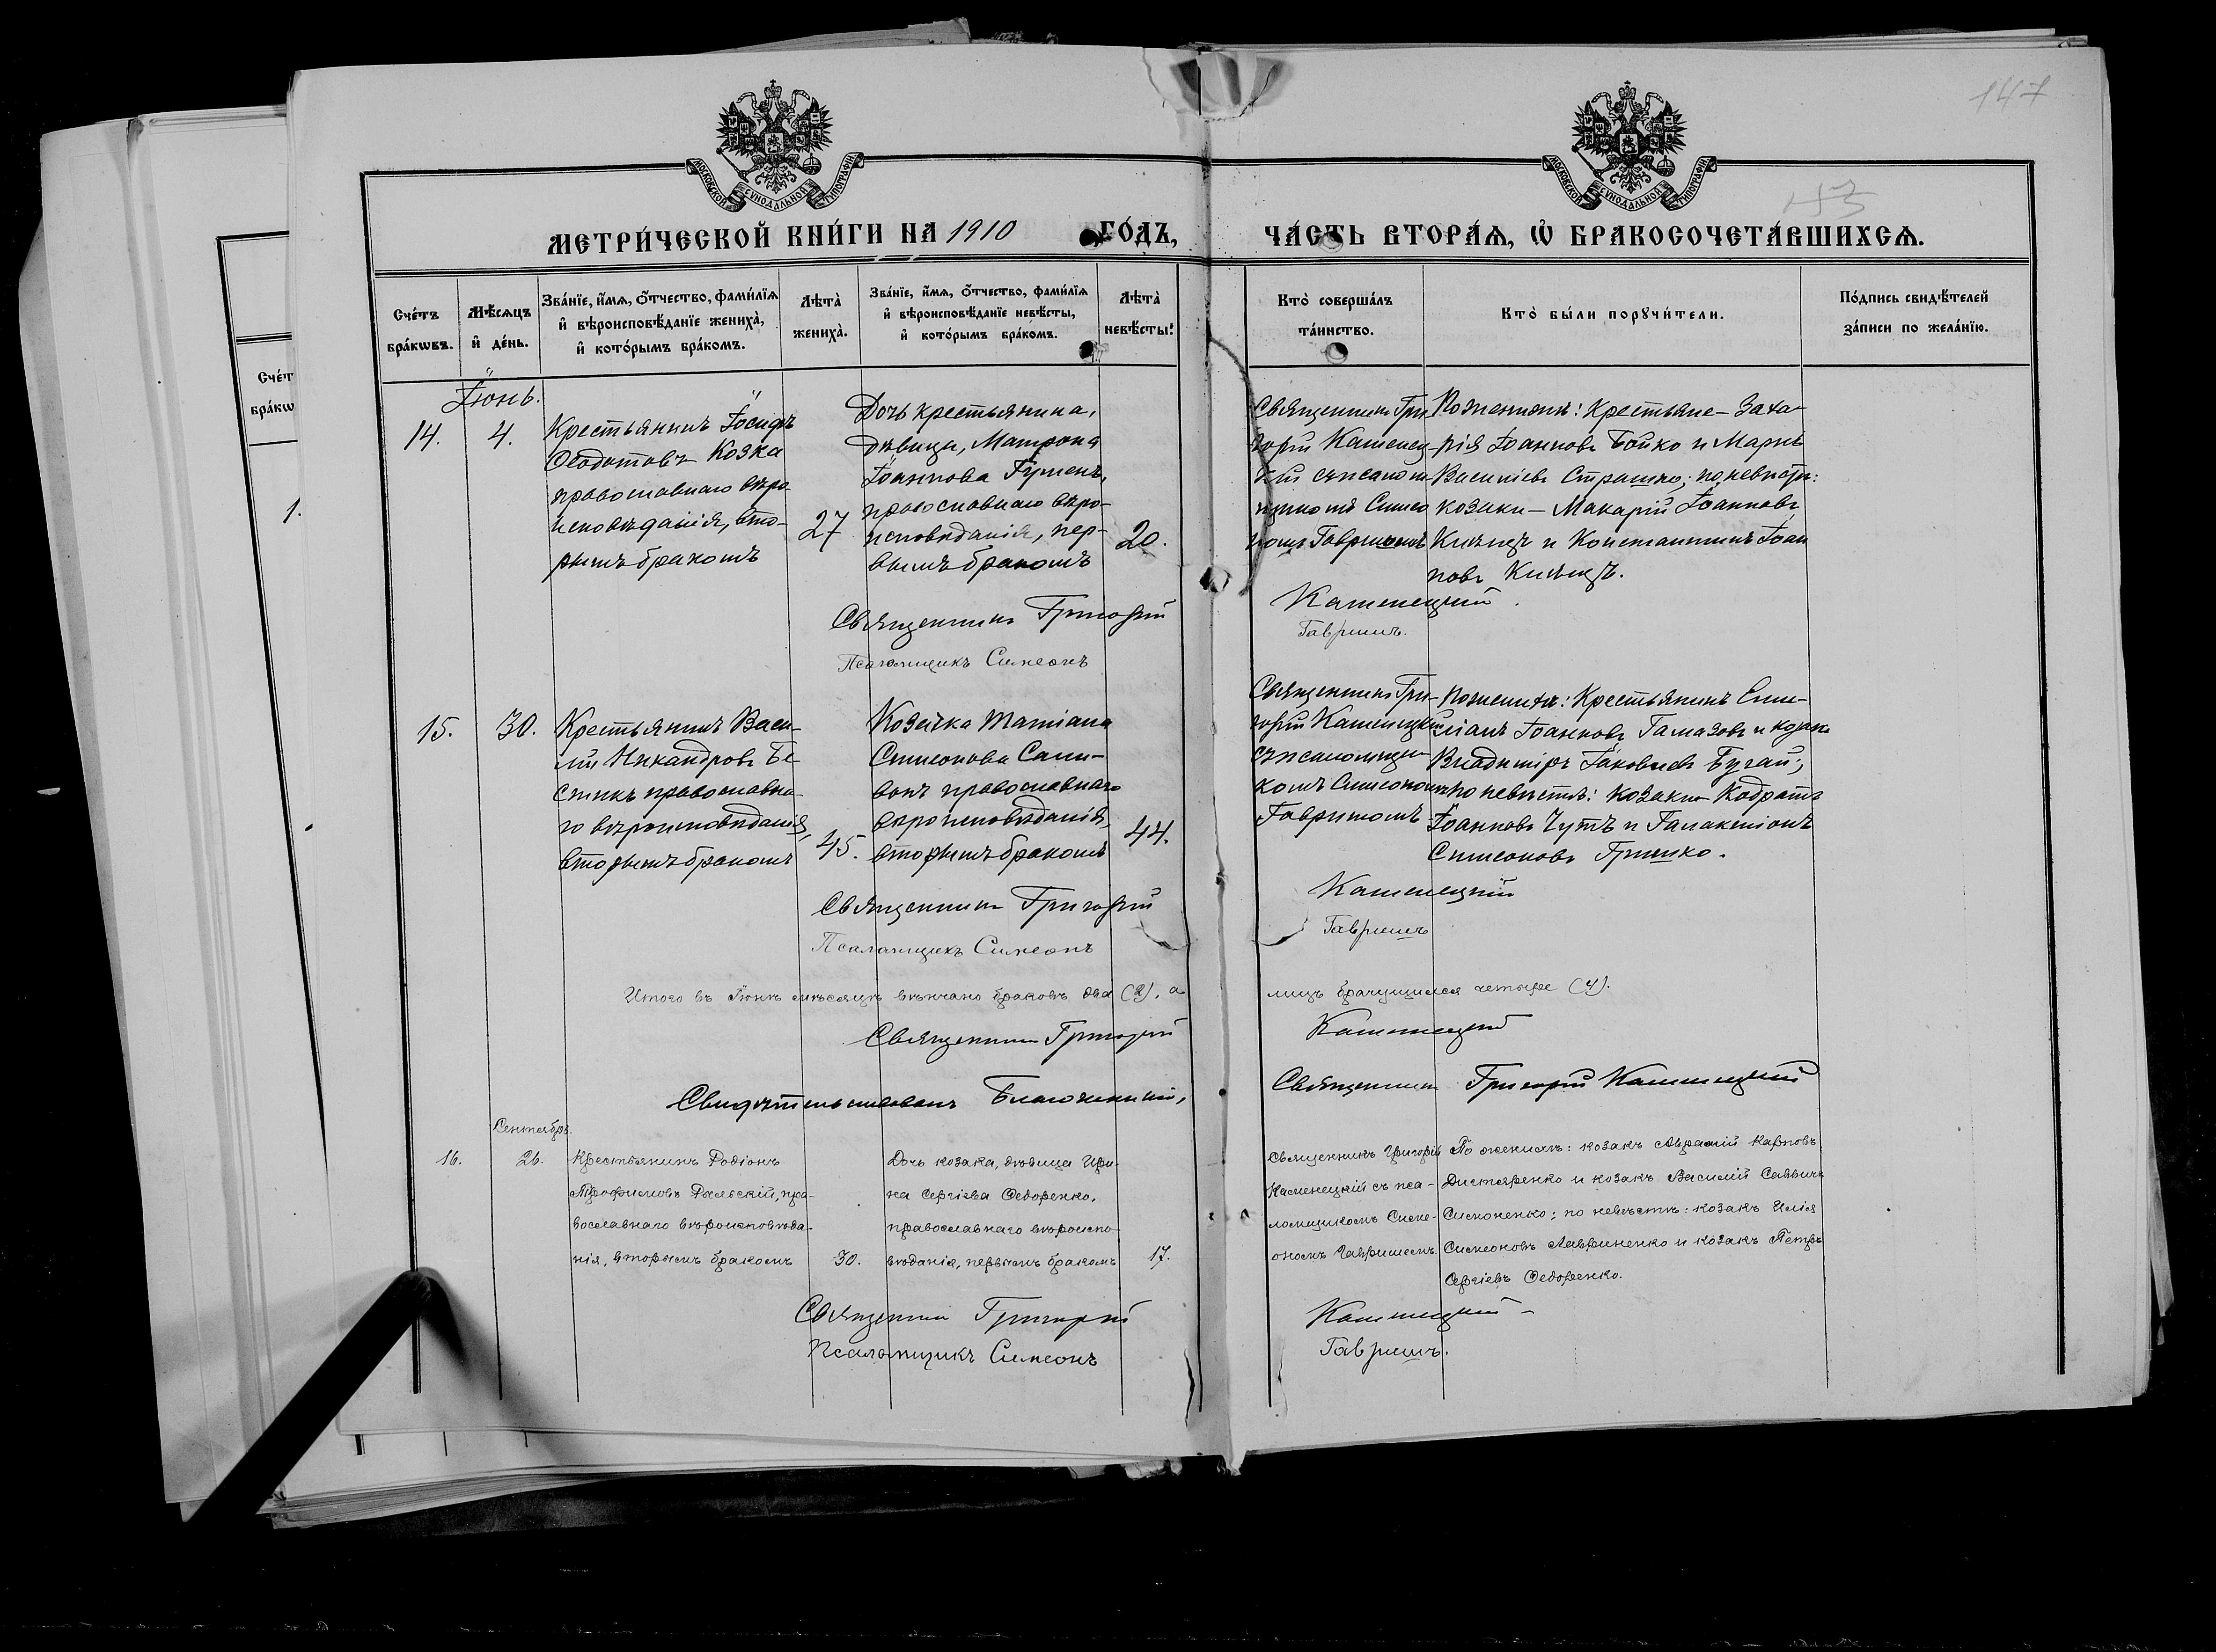 147
43
МОСКОВСКОЙ СѴНОДАЛЬНОЙ ТИПОГРАФІИ
МОСКОВСКОЙ СѴНОДАЛЬНОЙ ТИПОГРАФІИ
МЕТРИ́ЧЕСКОЙ КНИ́ГИ НА 1910 ГО́ДЪ,
ЧА́СТЬ ВТОРА́Ѧ, Ѡ҆ БРАКОСОЧЕТА́ВШИХСѦ.
Сче́тъ
бра́кѡвъ.
Мѣ́сѧцъ
и҆ де́нь.
Зва́нїе, и҆́мѧ, ѻ҆́тчество, фами́лїѧ
и҆ вѣроисповѣ́данїе жениха̀,
и҆ кото́рымъ бра́комъ.
Лѣта̀
жениха̀.
Зва́нїе, и҆́мѧ, ѻ҆́тчество, фами́лїѧ
и҆ вѣроисповѣ́данїе невѣ́сты,
и҆ кото́рымъ бра́комъ.
Лѣта̀
невѣ́сты.
Кто̀ соверша́лъ
та́инство.
Кто̀ бы́ли порꙋчи́тели.
По́дпись свидѣ́телей
за́писи по жела́нїю.
Сче́т
бра́кѡ
1.
Іюнь.
14.
4.
Крестьянинъ Іосифъ
Ѳеодотовъ Козка
православнаго вѣро-
исповѣданія, вто-
рымъ бракомъ
27
Дочь крестьянина,
дѣвица, Матрона
Іоаннова Гуменъ,
православнаго вѣро-
исповѣданія, пер-
вымъ бракомъ
20.
Священникъ Гри-
горій Каменец-
кій съ псаломщ-
икомъ Симео
номъ Гавришемъ
По женихѣ: Крестьяне - Заха-
рія Іоанновъ Бойко и Маркъ
Василіевъ Страшко; по невѣстѣ:
козаки - Макарій Іоанновъ
Княжецъ и Константинъ Іоан
новъ Княжецъ.
Священникъ Григорій Каменецкій
Псаломщикъ Симеонъ Гавришъ.
15.
30.
Крестьянинъ Васи-
лій Никандровъ Бе-
стикъ православна-
го вѣроисповѣданія,
вторымъ бракомъ
45.
Козачка Татіана
Симеонова Сали-
вонъ православнаго
вѣроисповѣданія,
вторымъ бракомъ
44.
Священникъ Гри-
горій Каменецкій
съ псаломщи-
комъ Симеономъ
Гавришомъ
По женихѣ: Крестьянинъ Еми-
ліанъ Іоанновъ Гамазовъ и козакъ
Владиміръ Іаковлевъ Бугай;
по невѣстѣ: козаки Кодратъ
Іоанновъ Чутъ и Галактіонъ
Симеоновъ Гришко.
Священникъ Григорій Каменецкій
Псаломщикъ Симеонъ Гавришъ
Итого въ Іюнѣ мѣсяцѣ вѣнчано браковъ два (2), а лицъ брачущихся четыре (4).
Священникъ Григорій Каменецкій
Свидѣтельствовалъ Благочинный, Священникъ Григорій Каменецкій
Сентябрь.
16.
26.
Крестьянинъ Родіонъ
Трофимовъ Рыльскій, пра-
вославнаго вѣроисповѣда-
нія, вторымъ бракомъ
30.
Дочь козака, дѣвица Ири-
на Сергіева Ѳедоренко,
православнаго вѣроиспо-
вѣданія, первымъ бракомъ
17.
Священникъ Григорій
Каменецкій съ пса-
ломщикомъ Симе-
ономъ Гавришемъ.
По женихѣ: козакъ Аврамій Карповъ
Дистяренко и козакъ Василій Саввичъ
Симоненко; по невѣстѣ: козакъ Илія
Симеоновъ Лавриненко и козакъ Петръ
Сергіевъ Ѳедоренко.
Священникъ Григорій Каменецкій
Псаломщикъ Симеонъ Гавришъ.